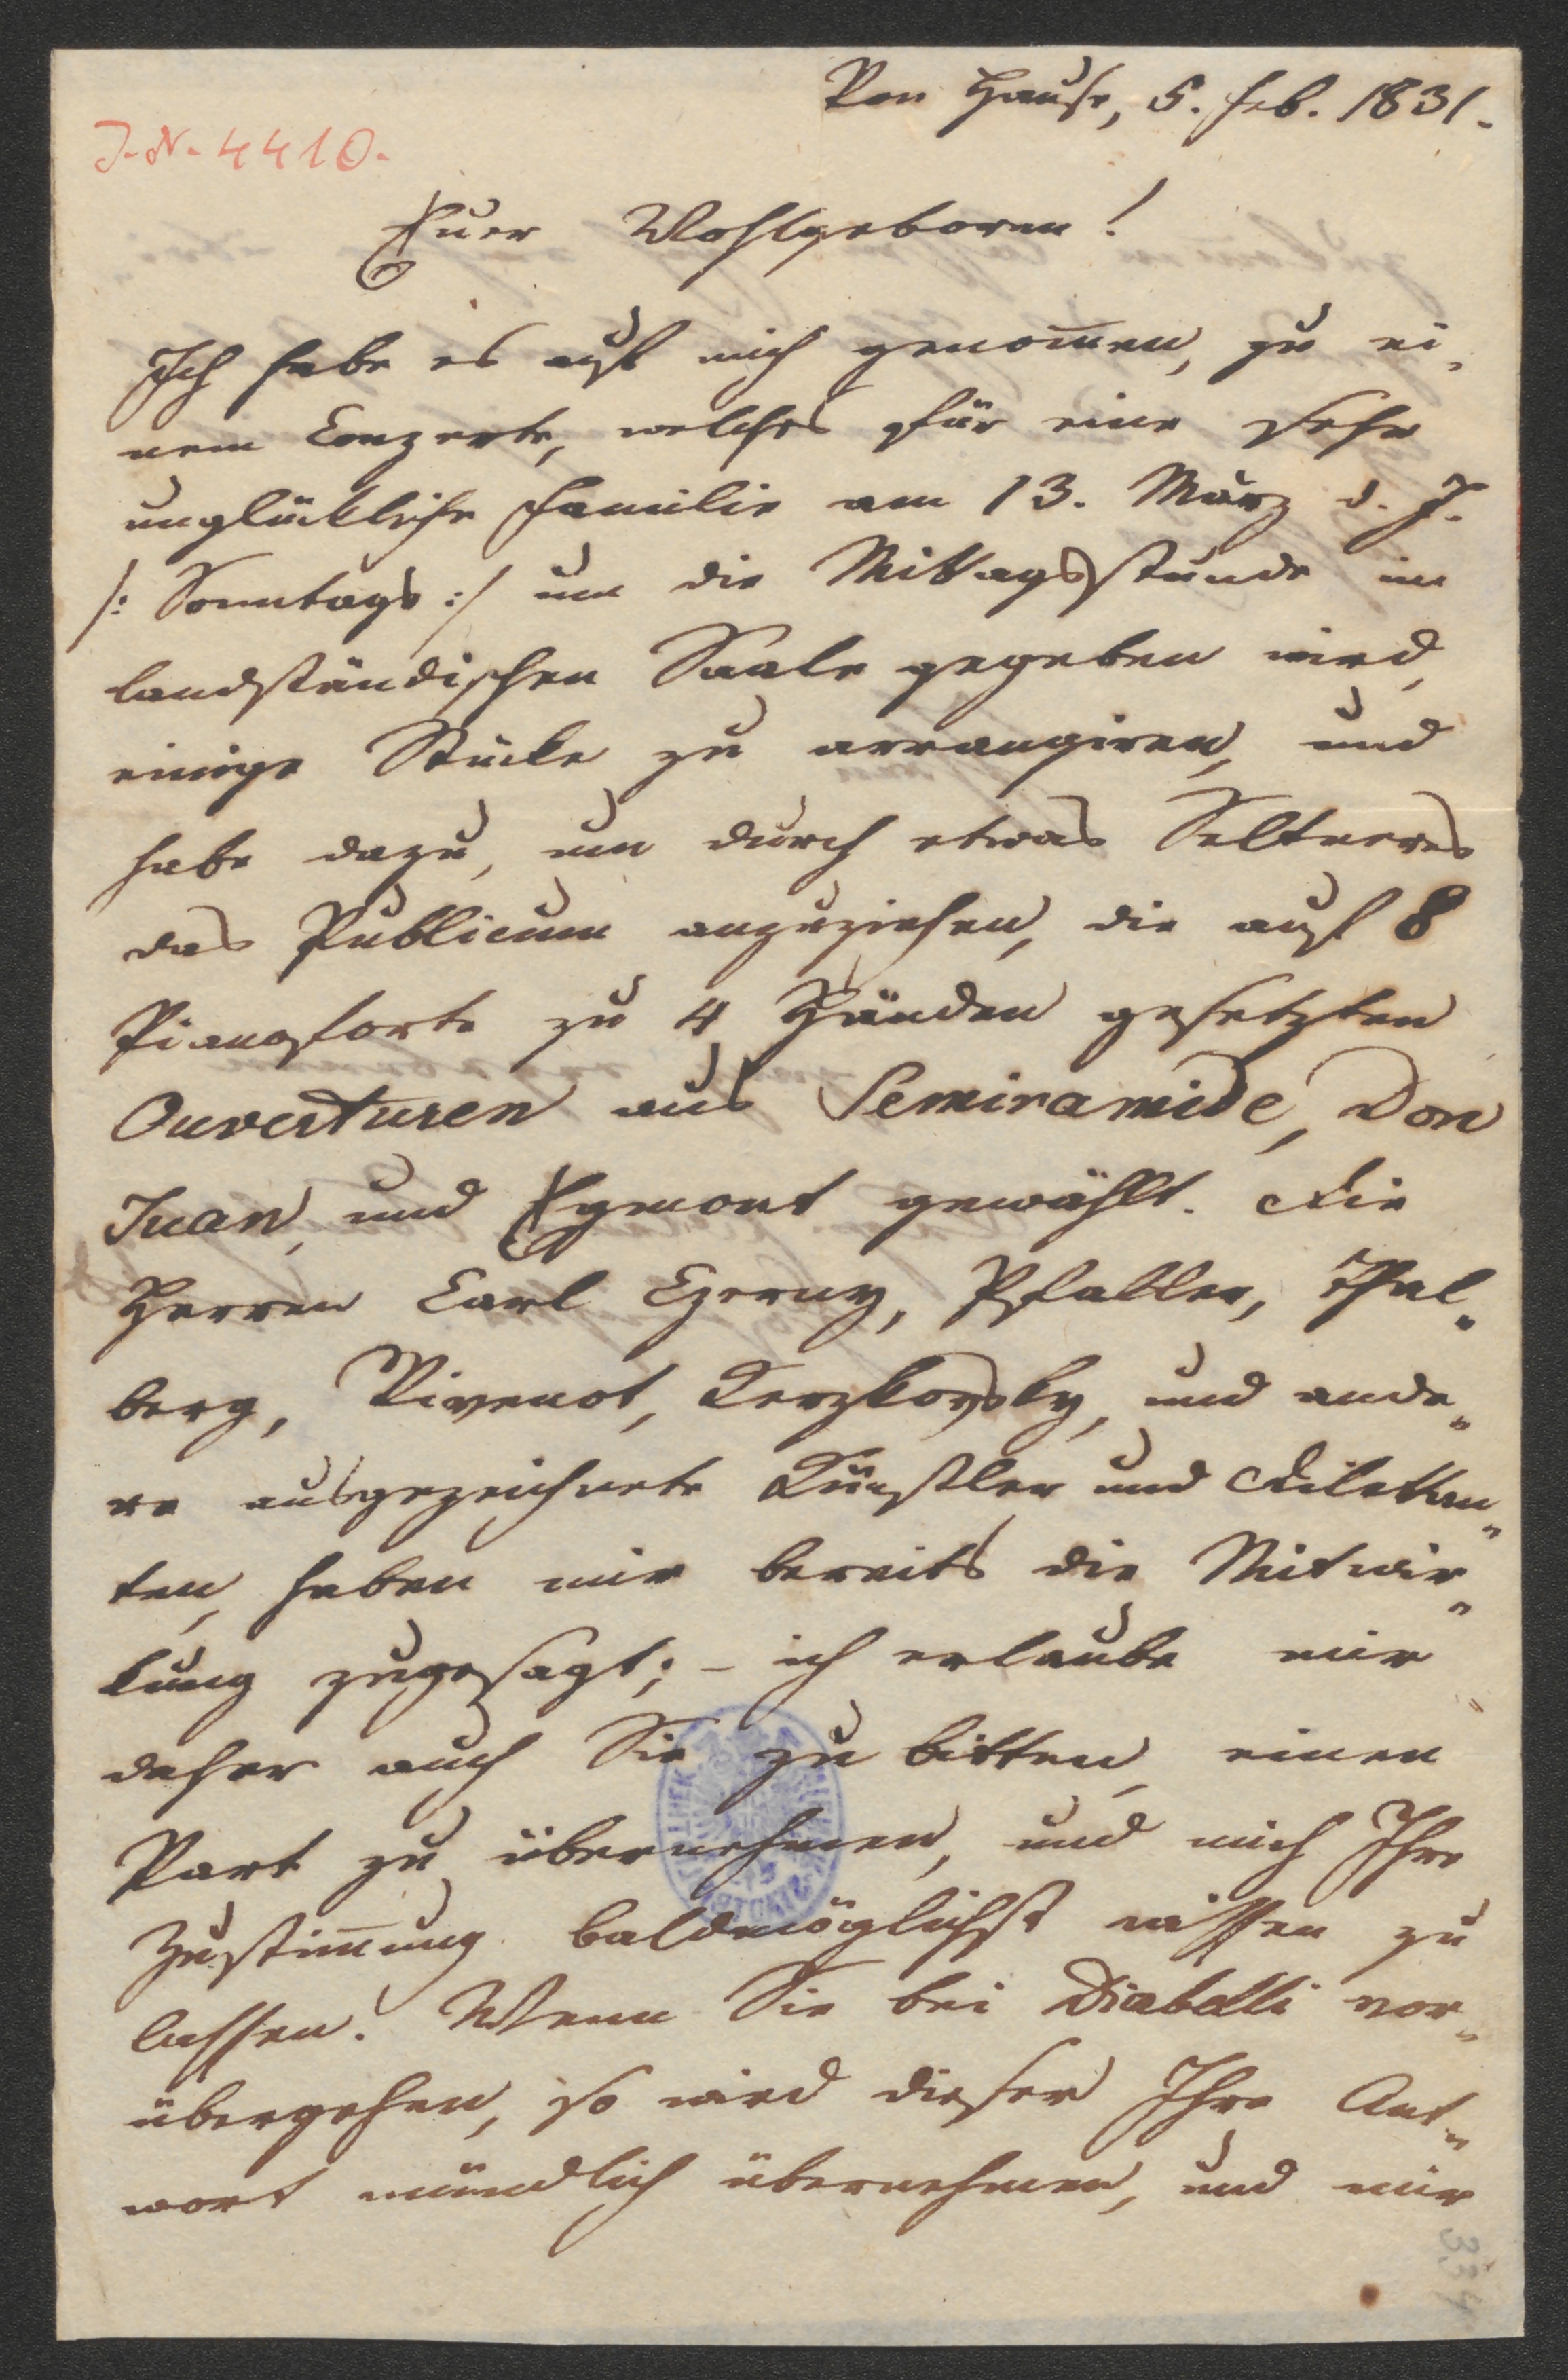 Von Hause, 5. Feb. 1831.
J. N. 4410.
Euer Wohlgeboren!
Ich habe es auf mich genom̄en, zu ei-
nem Conzerte, welches für eine sehr
unglückliche Familie am 13. März d. J.
/: Sonntags :/ um die Mittagsstunde im
landständischen Saale gegeben wird,
einige Stücke zu arrangiren, und
habe dazu, um durch etwas Seltneres
das Publicum anzuziehen, die auf 8
Pianoforte zu 4 Händen gesetzten
Ouverturen aus Semiramide, Don
Juan, und Egmont gewählt. Die
Herren Carl Czerny, Pfaller, Thal-
berg, Vivenot, Kerzkowsky, und ande-
re ausgezeichnete Künstler und Dilettan-
ten, haben mir bereits die Mitwir-
kung zugesagt; – ich erlaube mir
daher auch Sie zu bitten, einen
Part zu übernehmen, und mich Ihre
Zustim̄ung baldmöglichst wissen zu
lassen. Wenn Sie bei Diabelli vor-
übergehen, so wird dieser Ihre Ant-
wort mündlich übernehmen, und mir